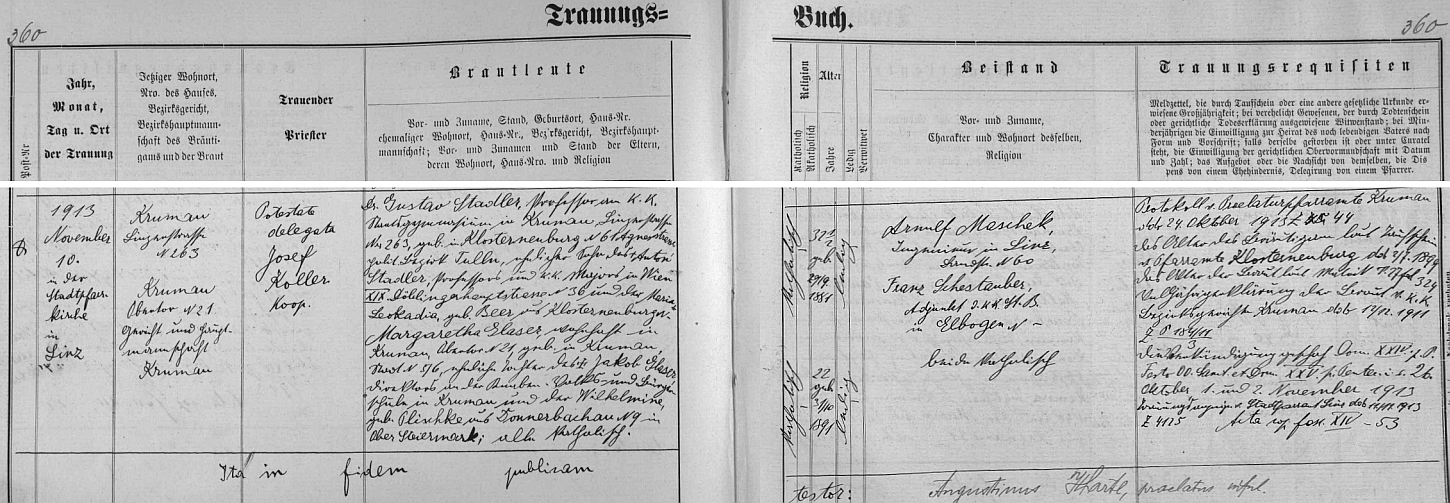 360
Trauungs=
Buch.
360
Post-Nr
Jahr,
Monat,
Tag u. Ort
der Trauung
Jetziger Wohnort,
Nro. des Hauses,
Bezirksgericht,
Bezirkshauptmann-
schaft des Bräuti-
gams und der Braut
Trauender
Priester
Brautleute
Vor- und Zuname, Stand, Geburtsort, Haus-Nr.
ehemaliger Wohnort, Haus-Nr., Bezirksgericht, Bezirkshaupt-
mannschaft; Vor- und Zunamen und Stand der Eltern,
deren Wohnort, Haus-Nro. und Religion
Religion
Katholisch
Akatholisch
Alter
Jahre
Ledig
Verwitwet
Beistand
Vor- und Zuname,
Charakter und Wohnort desselben,
Religion
Trauungsrequisiten
Meldzettel, die durch Taufschein oder eine andere gesetzliche Urkunde er-
wiesene Großjährigkeit; bei verehelicht Gewesenen, der durch Todtenschein
oder gerichtliche Todeserklärung ausgewiesene Witwenstand; bei Min-
derjährigen die Einwilligung zur Heirat des noch lebendigen Vaters nach
Form und Vorschrift; falls derselbe gestorben ist oder unter Curatel
steht, die Einwilligung der gerichtlichen Obervormundschaft mit Datum
und Zahl; das Aufgebot oder die Nachsicht von demselben, die Dis
pens von einem Ehehindernis, Delegirung von einem Pfarrer.
8
1913
November
10.
in der
Stadtpfarr-
kirche
in
Linz
Kruman
Linzerstrasse
N 263
Kruman
Obertor N 21
Gericht und Haupt-
mannschaft
Kruman
Potestate
delegata
Josef
Koller
Koop.
Dr. Gustav Stadler, Professor am K. K.
Staatsgymnasium in Kruman, Linzerstrasse
No 263, geb. in Klosterneuburg N 61 Agnesstrasse
polit. Bezirk Tulln, ehelicher Sohn des Anton
Stadler, Professors und k.k. Majors in Wien
XIX Döblingerhauptstrasse N 36 und der Maria
Leokadia, geb. Beer aus Klosterneuburg.
Margaretha Glaser, wohnhaft in
Kruman, Obertor N 21, geb. in Kruman,
N 516, eheliche Tochter des Jakob Glaser
Direktors an der Knaben- Volks und Bürger-
schule in Kruman und der Wilhelmine,
geb. Plischke aus Donnerbachau N 9 in
Ober Steiermark; alle katholisch.
katholisch
geb.
1881
ledig
katholisch
22
geb
1891
ledig
Arnulf Maschek,
Ingenieur in Linz,
Landstr. N 60
Franz Schestauber,
Adjunkt d. k k St. B.
in Elbogen N –
beide katholisch
Protokoll v. Praelaturpfarramte Kruman
ddo 24. Oktober 1913 Z 44
das Alter des Bräutigams laut Taufschein
v. Pfarramte Klosterneuburg dd 2/7. 1899
das Alter der Braut laut Matrik 324
Volljährigerklärung der Braut v. K.K.
Bezirksgerichte Kruman ddo 1911
die Verkündigung geschah Dom. XXIV. p. P.
Festo OO. Sanct. et Dom. XXV p. Pent. i. e. 26.
Oktober 1. und 2 November 1913
Trauungsanzeige v. Stadtpfarramt Linz ddo 1913
Z 4125 Acta XIV – 53
Ita in fidem publicam
testor: Augustinus praelatus inful.